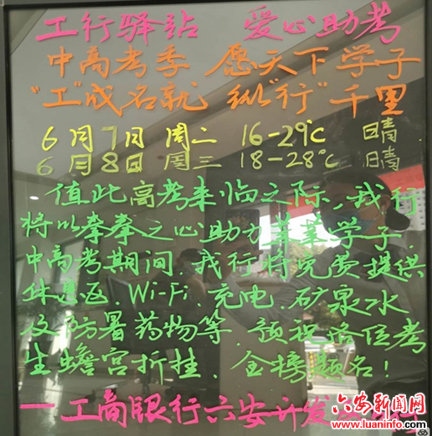 工行驿站 爱心助考
中高考季 愿天下学子
"工"成名就 纵"行"千里
6月7日 周二 16-29℃ 晴
6月8日 周三 18-28℃ 晴
值此高考来临之际,我行
将以拳拳之心助力莘莘学子.
中高考期间.我行将免费提供
休息区.Wi-Fi.充电.矿泉水
及防暑药物等.预祝各位考
生蟾宫折挂.金榜题名!
—工商银行六安开发区支行
六安新闻网
www.luanews.com